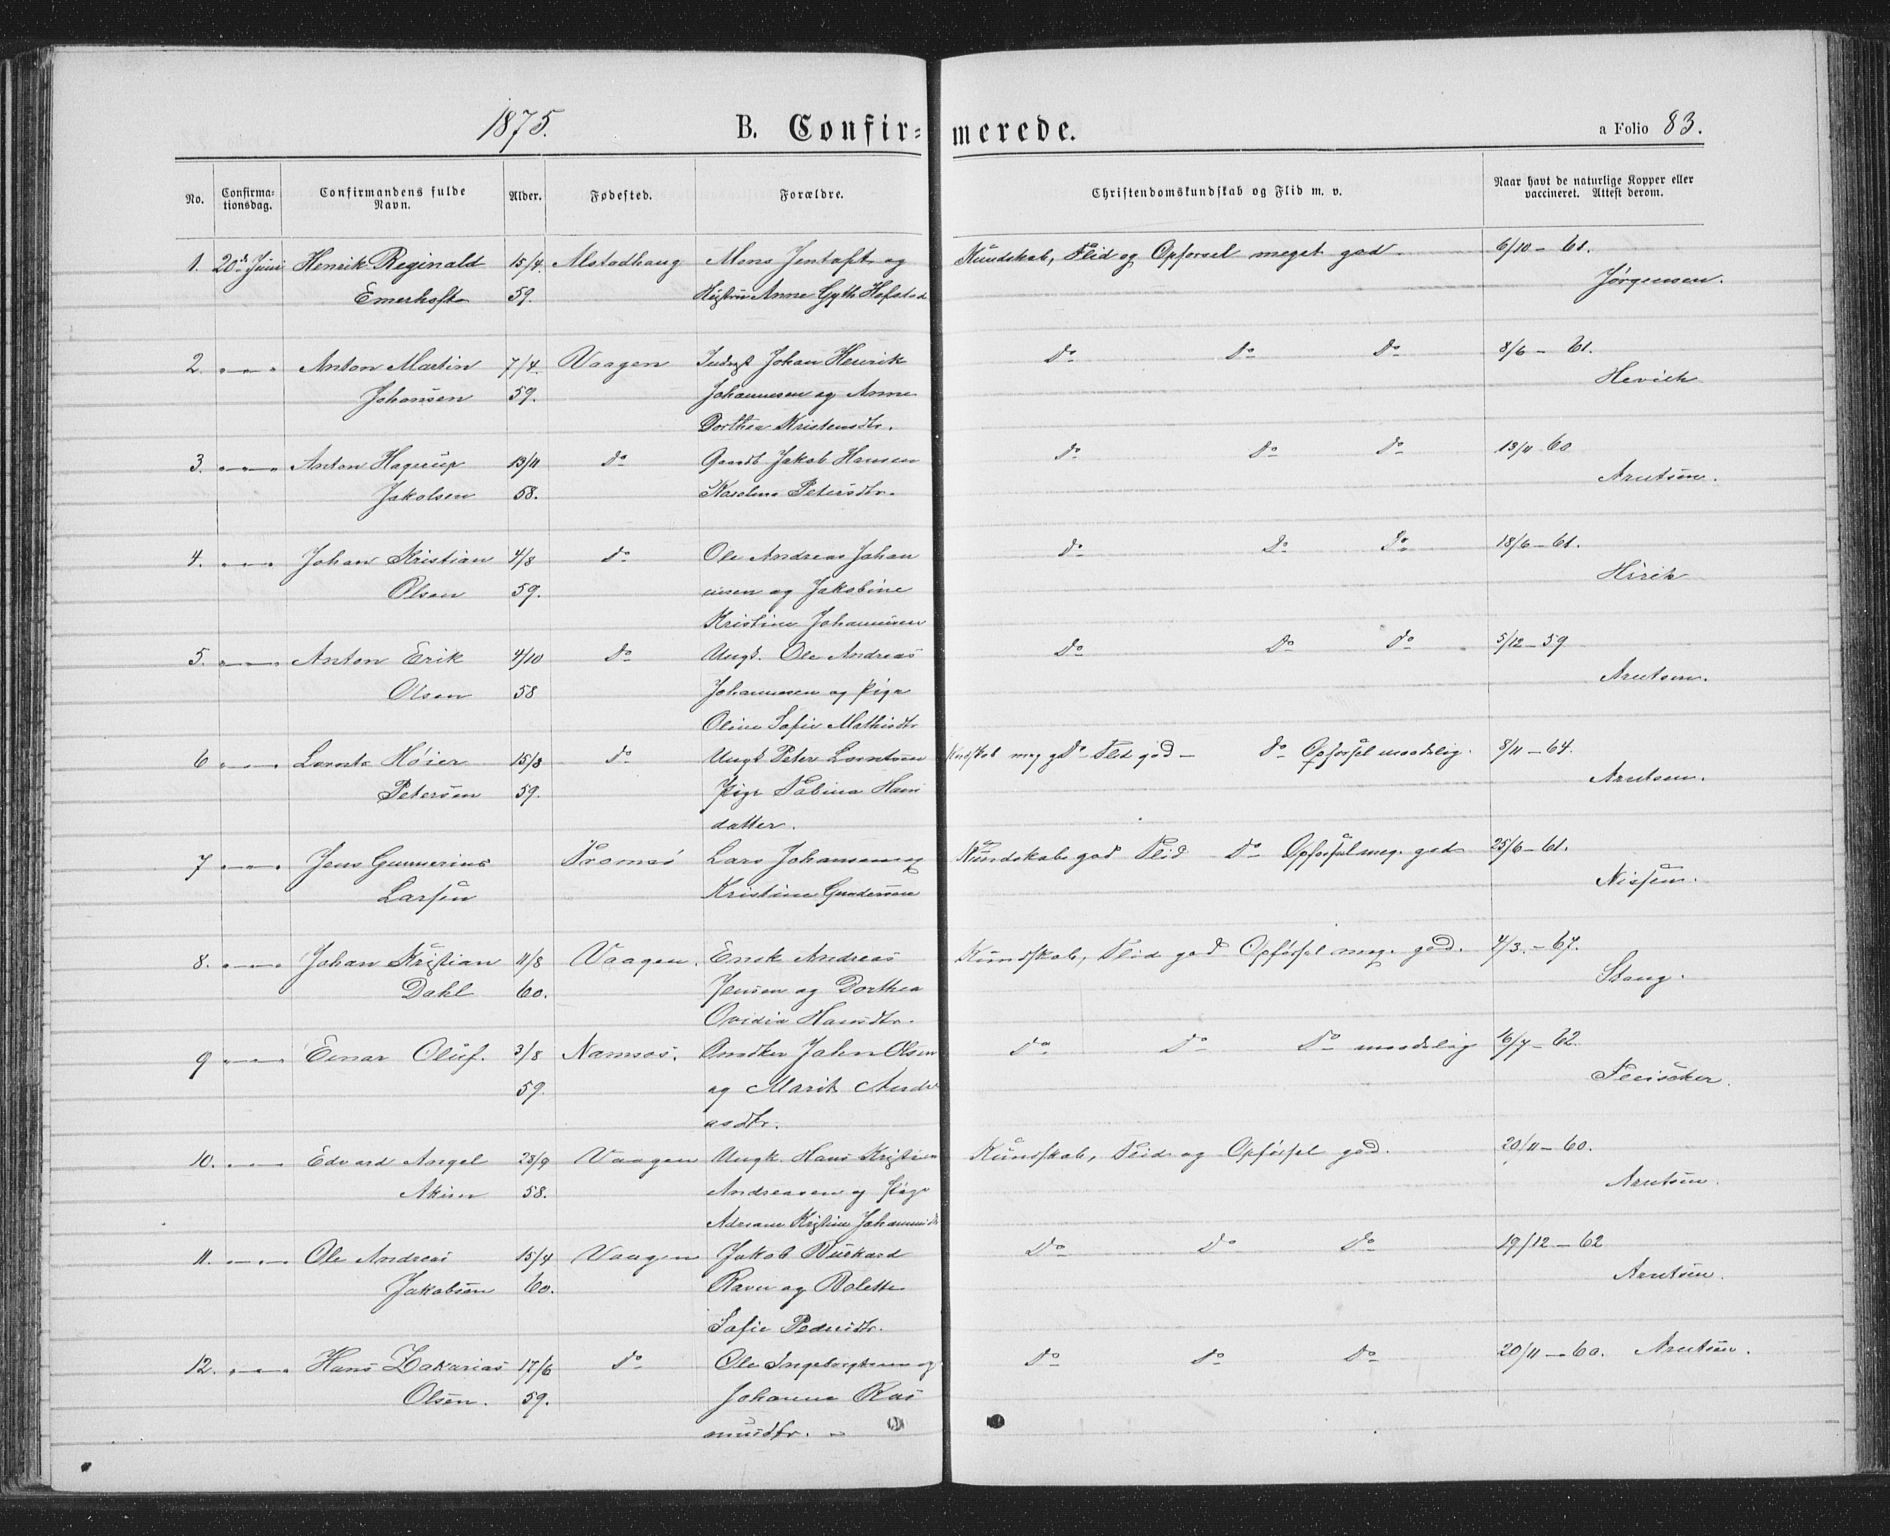 1875. B. Confir= merede. a Folio 83.
No. Confirma-tionsdag. Confirmandens fulde Navn. Alder. Fødested. Forældre. Christendomskundskab og Flid m. v. Naar havt de naturlige Kopper eller vaccineret. Attest derom.
1. 20de Juni Henrik Reginald 15/4 Alstadhaug Mons Jentoft og Kundskab, Flid og Opførsel meget god. 6/10 - 61.
Emerhoft 59. Hustru Anne Gyth Hofstad Jørgensen.
2. Anton Martin 7/4 Vaagen Johan Henrik Do Do Do 8/6 - 61.
Johansen 59. Johannesen og Anne
Dorthea Kristensdtr.
3. Anton Hagerup 13/11 Do Gaardb Jakob Hansen Do Do Do 13/11 60
Jakobsen 58. Petersdtr. Arntsen.
4. Johan Kristian 4/8 Do Ole Andreas Johan Do Do Do 18/6 - 61.
Olsen 59. nesen og Jakobine
Kristine Johannesen
5. Anton Erik 4/10 Do Ungk. Ole Andreas Do Do Do 5/12 - 59
Olsen 58 Johannesen og Pige Arntsen.
Oline Sofie Mathisdtr
6 Lornts Høier 15/8 Do Ungk Peter Lorntsen Kundskab meg god Flid god - Do Opførsel maadelig. 8/11 - 64.
Petersen 59. Pige Sabina Hans Arntsen.
datter.
7 Jens Gunnerius Tromsø Lars Johansen og Kundskab god Flid Do Opførsel meg. god 25/6 - 61.
Larsen Kristine Gundersen Nissen.
8. Johan Kristian 11/8 Vaagen. Enek Andreas Kundskab, Flid god Opførsel meg. god. 4/3. - 67.
Dahl 60. Jensen og Dorthea Stang.
Ovidia Hansdtr.
9 Einar Oluf. 3/8 Namsos. John Olsen Do Do Do maadelig 16/7 - 62.
59. og Marit Andre
asdtr.
10. Edvard Angel 28/9 Vaagen Ungk. Hans Kristian Kundskab, Flid og Opførsel god. 20/11 - 60.
58. Andreassen og Pige Arntsen.
Kristine
11. Ole Andreas 15/4 Vaagen Jakob Burkard Do Do Do 19/12 - 62
Jakobsen 60. Ravn og Bolette Arntsen.
Sofie Pedersdtr.
12. Hans Zakarias 17/6 Do Ole Ingebrigtsen og Do Do Do 20/11 - 60. Arntsen.
Olsen. 59. Johanna Ras
musdtr.